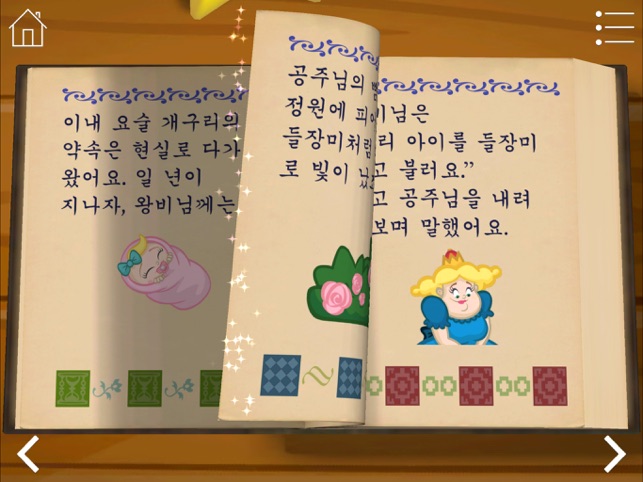 이내 요술 개구리의
약속은 현실로 다가
왔어요. 일 년이
지나자, 왕비님께는
공주님의
정원에
들장미처럼
로 빛이
비님은
리 아이를 들장미
고 불러요.”
고 공주님을 내려
보며 말했어요.